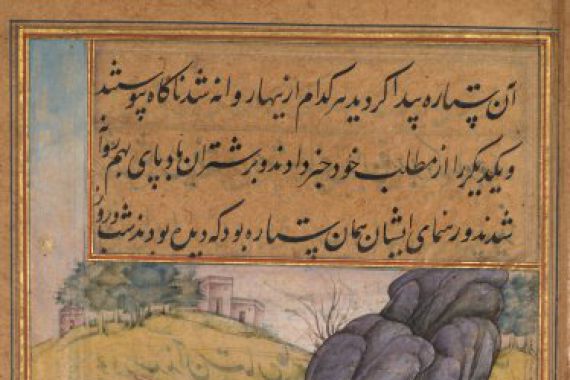 آن ستاره پیدا کردید هر کدام ازینها روانه شد ناگاه پیوستند
و یکدیگر را از مطالب خود خبر دادند و بر شتران بادپای بهم روانه
شدند و رهنمای ایشان همان ستاره بود که دیده بودند شب و روز